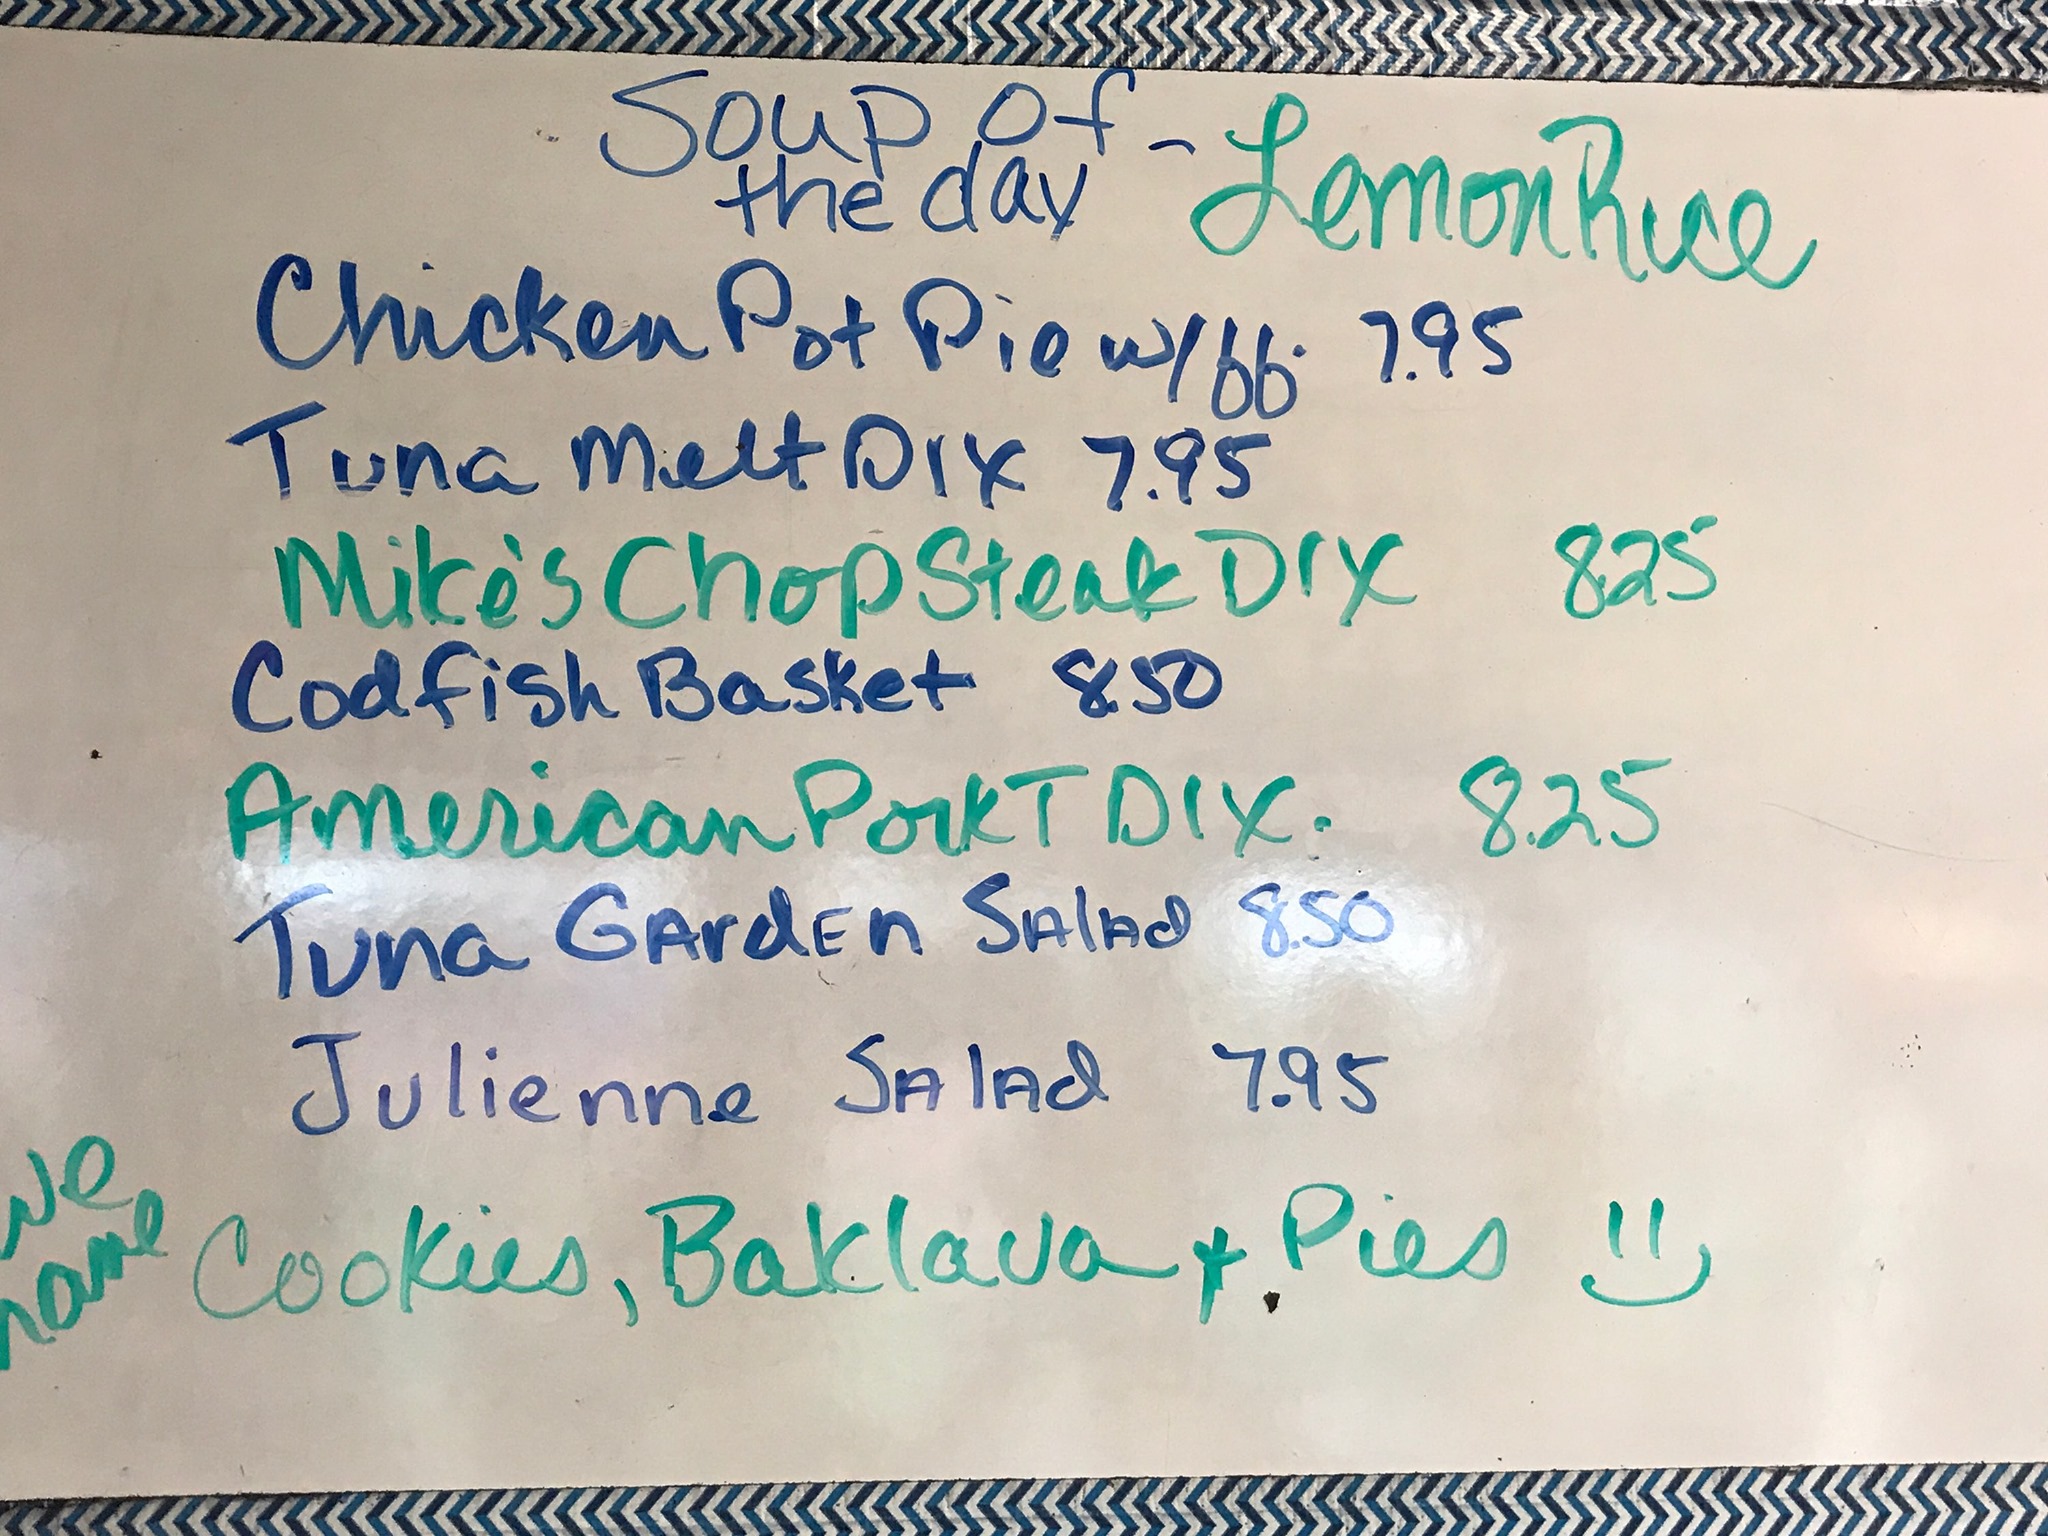 Soup of the day - Lemon Rice
Chicken Pot Pie w/ff. 7.95
Tuna Melt DIX 7.95
Mike's Chop Steak DIX 8.25
Codfish Basket 8.50
American Pork T DIX. 8.25
Tuna GArdEn SAlAd 8.50
Julienne SAlAd 7.95
we have Cookies, Baklava + Pies